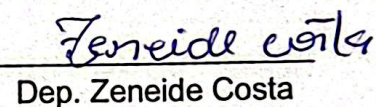 Zeneide Costa
Dep. Zeneide Costa